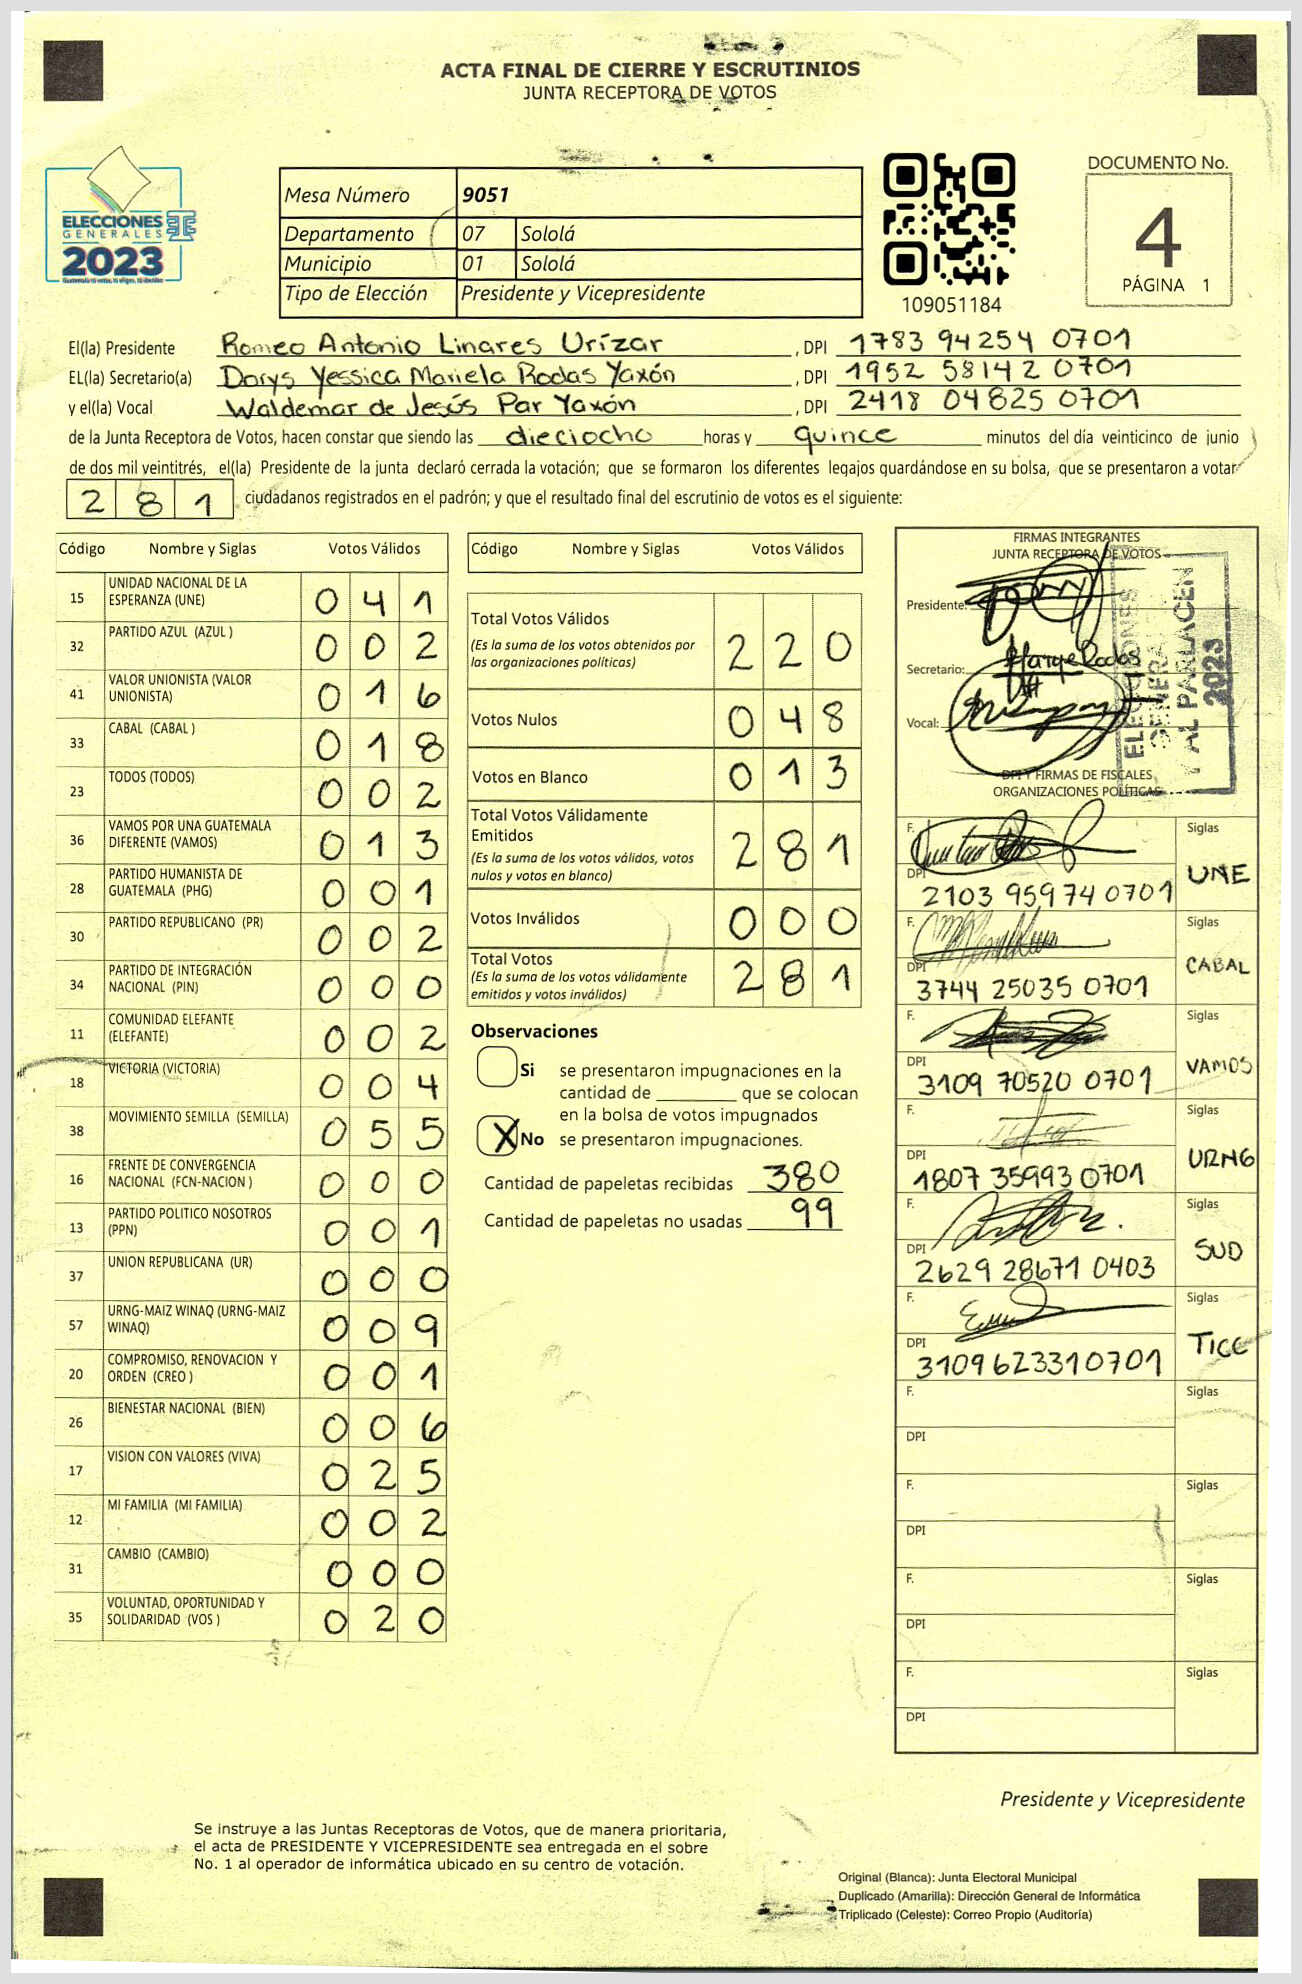 ACTA FINAL DE CIERRE Y ESCRUTINIOS
JUNTA RECEPTORA DE VOTOS
ELECCIONES
GENERALES
2023
Mesa Número 9051
Departamento 07 Sololá
Municipio 01 Sololá
Tipo de Elección Presidente y Vicepresidente
109051184
DOCUMENTO No.
4
PÁGINA 1
El(la) Presidente Romeo Antonio Linares Urízar , DPI 1783 94254 0701
EL(la) Secretario(a) Dorys Yessica Mariela Rodas Yaxón , DPI 1952 58142 0701
y el(la) Vocal Waldemar de Jesús Par Yaxón , DPI 2418 04825 0701
de la Junta Receptora de Votos, hacen constar que siendo las dieciocho horas y quince minutos del día veinticinco de junio
de dos mil veintitrés, el(la) Presidente de la junta declaró cerrada la votación; que se formaron los diferentes legajos guardándose en su bolsa, que se presentaron a votar
281 ciudadanos registrados en el padrón; y que el resultado final del escrutinio de votos es el siguiente:
Código Nombre y Siglas Votos Válidos
15 UNIDAD NACIONAL DE LA
ESPERANZA (UNE) 041
32 PARTIDO AZUL (AZUL ) 002
41 VALOR UNIONISTA (VALOR
UNIONISTA) 016
33 CABAL (CABAL ) 018
23 TODOS (TODOS) 002
36 VAMOS POR UNA GUATEMALA
DIFERENTE (VAMOS) 013
28 PARTIDO HUMANISTA DE
GUATEMALA (PHG) 001
30 PARTIDO REPUBLICANO (PR) 002
34 PARTIDO DE INTEGRACIÓN
NACIONAL (PIN) 000
11 COMUNIDAD ELEFANTE
(ELEFANTE) 002
18 VICTORIA (VICTORIA) 004
38 MOVIMIENTO SEMILLA (SEMILLA) 055
16 FRENTE DE CONVERGENCIA
NACIONAL (FCN-NACION ) 000
13 PARTIDO POLITICO NOSOTROS
(PPN) 001
37 UNION REPUBLICANA (UR) 000
57 URNG-MAIZ WINAQ (URNG-MAIZ
WINAQ) 009
20 COMPROMISO, RENOVACION Y
ORDEN (CREO ) 001
26 BIENESTAR NACIONAL (BIEN) 006
17 VISION CON VALORES (VIVA) 025
12 MI FAMILIA (MI FAMILIA) 002
31 CAMBIO (CAMBIO) 000
35 VOLUNTAD, OPORTUNIDAD Y
SOLIDARIDAD (VOS ) 020
Código Nombre y Siglas Votos Válidos
Total Votos Válidos
(Es la suma de los votos obtenidos por
las organizaciones políticas) 220
Votos Nulos 048
Votos en Blanco 013
Total Votos Válidamente
Emitidos
(Es la suma de los votos válidos, votos
nulos y votos en blanco) 281
Votos Inválidos 000
Total Votos
(Es la suma de los votos válidamente
emitidos y votos inválidos) 281
Observaciones
Si se presentaron impugnaciones en la
cantidad de ________ que se colocan
en la bolsa de votos impugnados
X No se presentaron impugnaciones.
Cantidad de papeletas recibidas 380
Cantidad de papeletas no usadas 99
FIRMAS INTEGRANTES
JUNTA RECEPTORA DE VOTOS
Presidente:
Secretario:
Vocal:
ELECCIONES
GENERA
Y AL PARLACEN
2023
DPI Y FIRMAS DE FISCALES
ORGANIZACIONES POLÍTICAS
F. Siglas
DPI 2103 95974 0701 UNE
F. Siglas
DPI 3744 25035 0701 CABAL
F. Siglas
DPI 3109 70520 0701 VAMOS
F. Siglas
DPI 1807 35993 0701 URNG
F. Siglas
DPI 2629 28671 0403 SUD
F. Siglas
DPI 3109 62331 0701 TICC
F. Siglas
DPI
F. Siglas
DPI
F. Siglas
DPI
F. Siglas
DPI
Presidente y Vicepresidente
Se instruye a las Juntas Receptoras de Votos, que de manera prioritaria,
el acta de PRESIDENTE Y VICEPRESIDENTE sea entregada en el sobre
No. 1 al operador de informática ubicado en su centro de votación.
Original (Blanca): Junta Electoral Municipal
Duplicado (Amarilla): Dirección General de Informática
Triplicado (Celeste): Correo Propio (Auditoría)